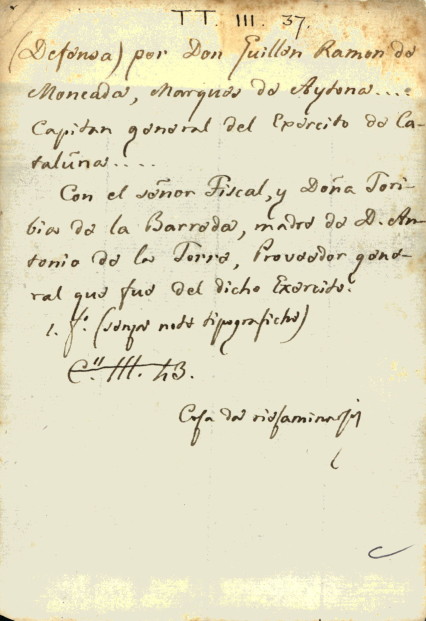 TT. III. 37.
(Defensa) por Don Guillen Ramon de
Moncada, Marques de Aytona....
Capitan general del Exército de Ca-
taluña....
Con el señor Fiscal, y Doña Tori-
bia de la Barreda, madre de D. An-
tonio de la Torre, Proveedor gene-
ral que fue del dicho Exercito.
1. f.º (senza note tipografiche)
C.II III. 43.
da riesaminarsi